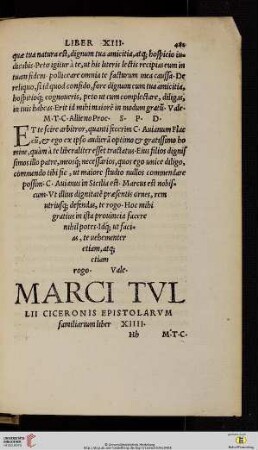 LIBER XIII· 481
quæ tua natura est, dignum tua amicitia, atq; hospitio iu
dicabis. Peto igitur à te, ut his literis lectis recipias eum in
tuam fidem: polliceare omnia te facturum mea caussa. De
reliquo, si id quod confido, fore dignum eum tua amicitia,
hospitioq; cognoueris, peto ut eum complectare, diligas,
in tuis habeas. Erit id mihi maiorē in modum gratũ. Vale·
M·T·C·Allieno Proc· S· P· D·
ET te scire arbitror, quanti fecerim C· Auianum Flac
cũ, & ego ex ipso audierã optimo & gratissimo ho
mine, quàm à te liberaliter esset tractatus. Eius filios dignis
simos illo patre, meosq; necessarios, quos ego unice diligo,
commendo tibi sic, ut maiore studio nullos commendare
possim· C· Auianus in Sicilia est· Marcus est nobis
cum· Vt illius dignitatē præsentis ornes, rem
utriusq; defendas, te rogo· Hoc mihi
gratius in ista prouincia facere
nihil potes· Idq; ut facias
, te uehementer
etiam, atq;
etiam
rogo· Vale·
MARCI TVL
LII CICERONIS EPISTOLARVM
familiarium liber XIIII·
Hh M·T·C·